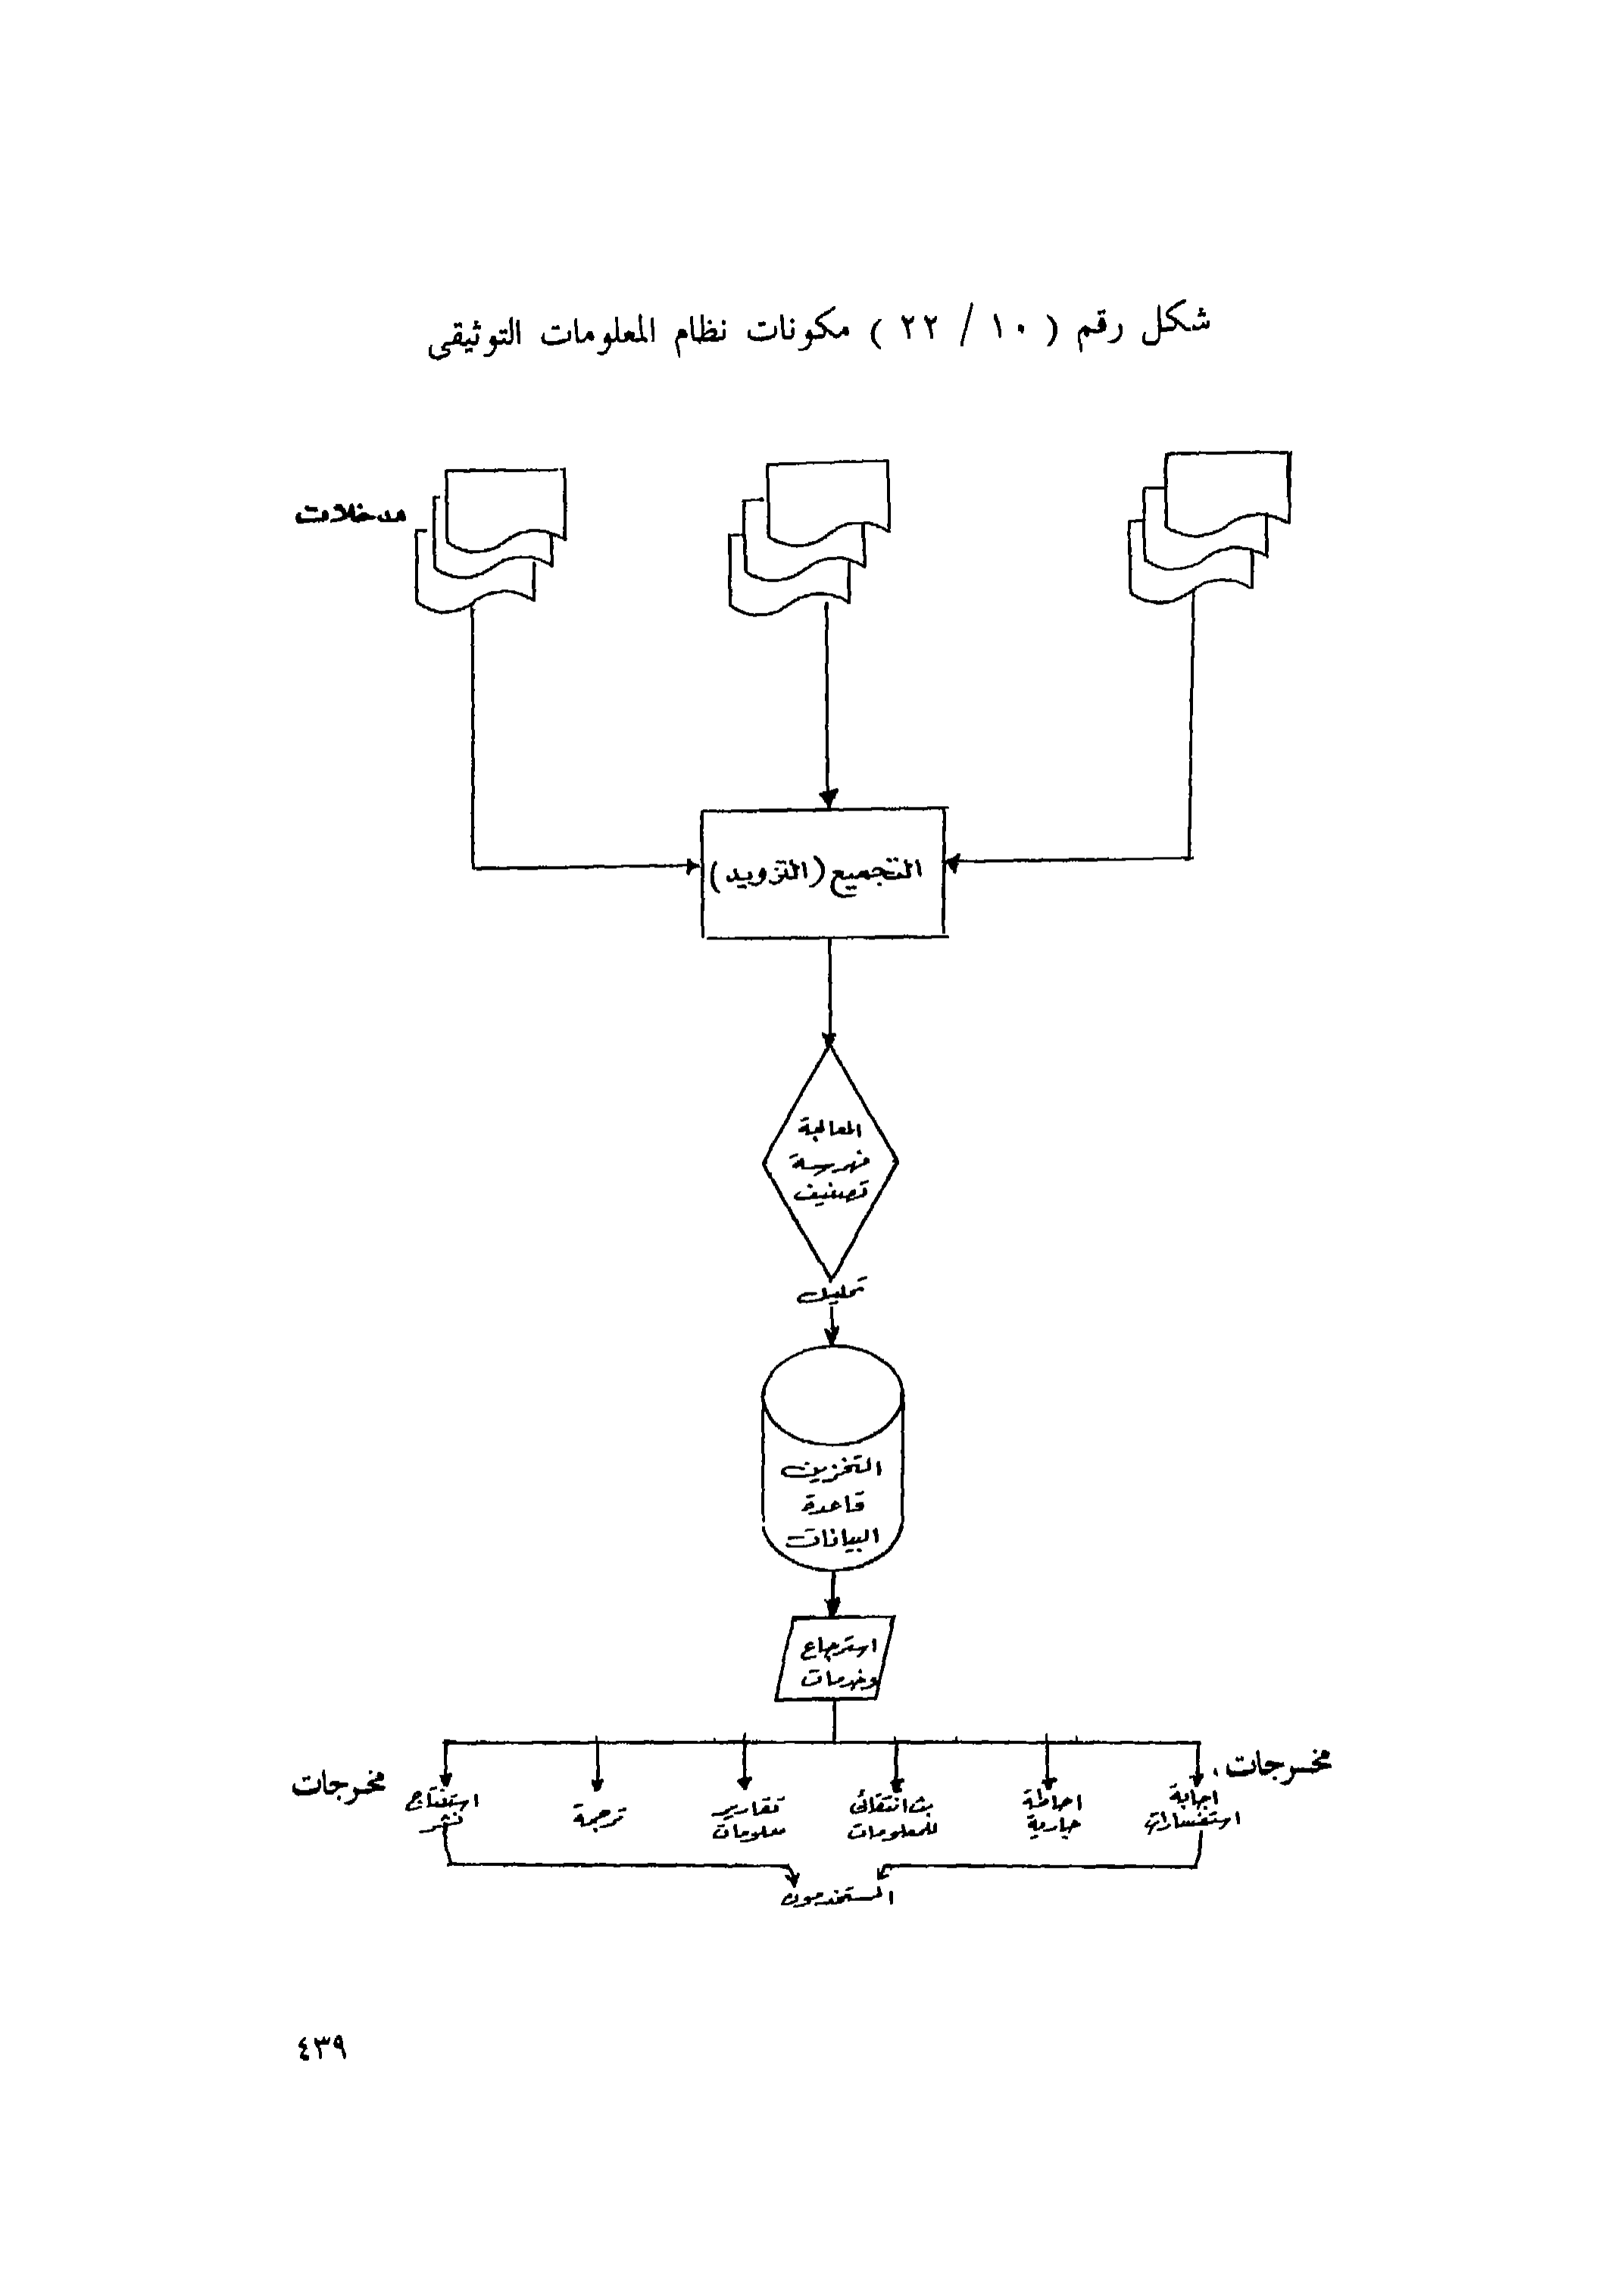 شكل رقم ( ١٠ / ٢٢ ) مكونات نظام المعلومات التوثيقى
مدخلات
التجميع (التزويد)
المعالجة
فهرسة
تصنيف
تحليل
التخزين
قاعدة
البيانات
استرجاع
وخدمات
مخرجات
اجابة
استفسارات
احاطة
جارية
بث انتقائى
للمعلومات
تقارير
معلومات
ترجمة
استنتاج
نشر
مخرجات
المستخدمون
٤٣٩